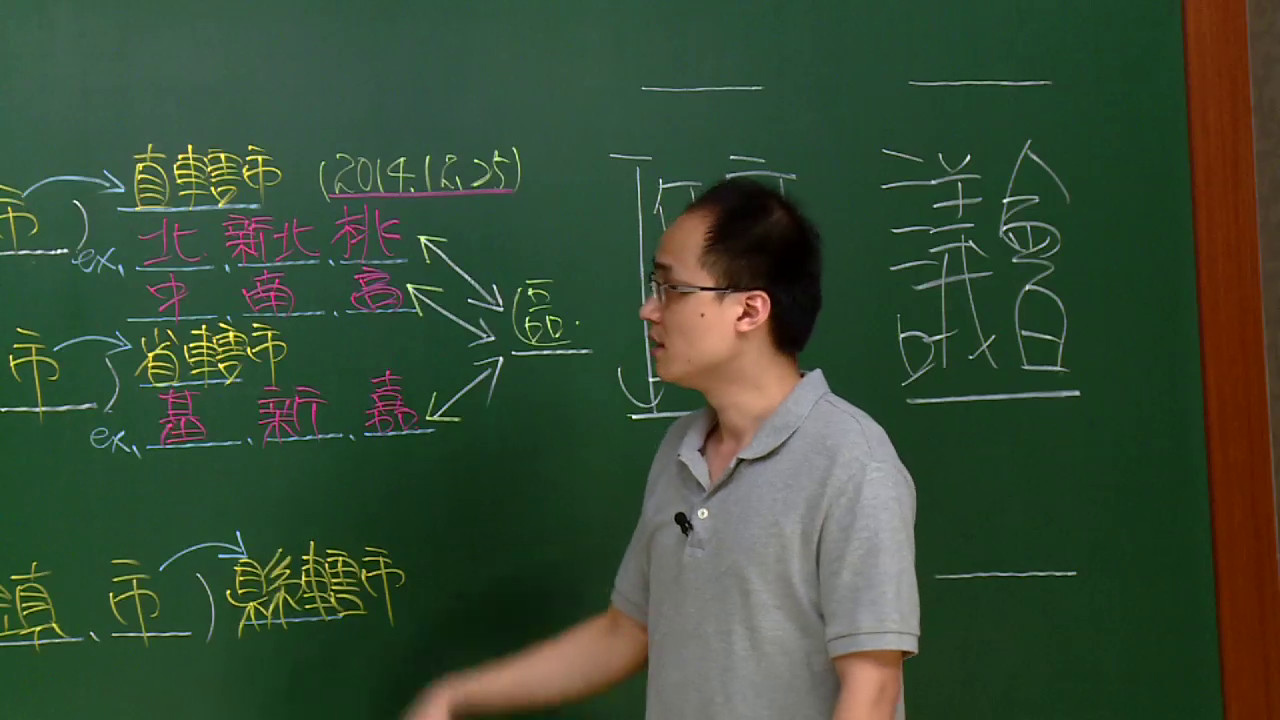 市) 直轄市 (2014.12.25)
ex. 北、新北、桃
中、南、高
市) 省轄市
ex、基、新、嘉
(區
議會
鎮、市) 縣轄市